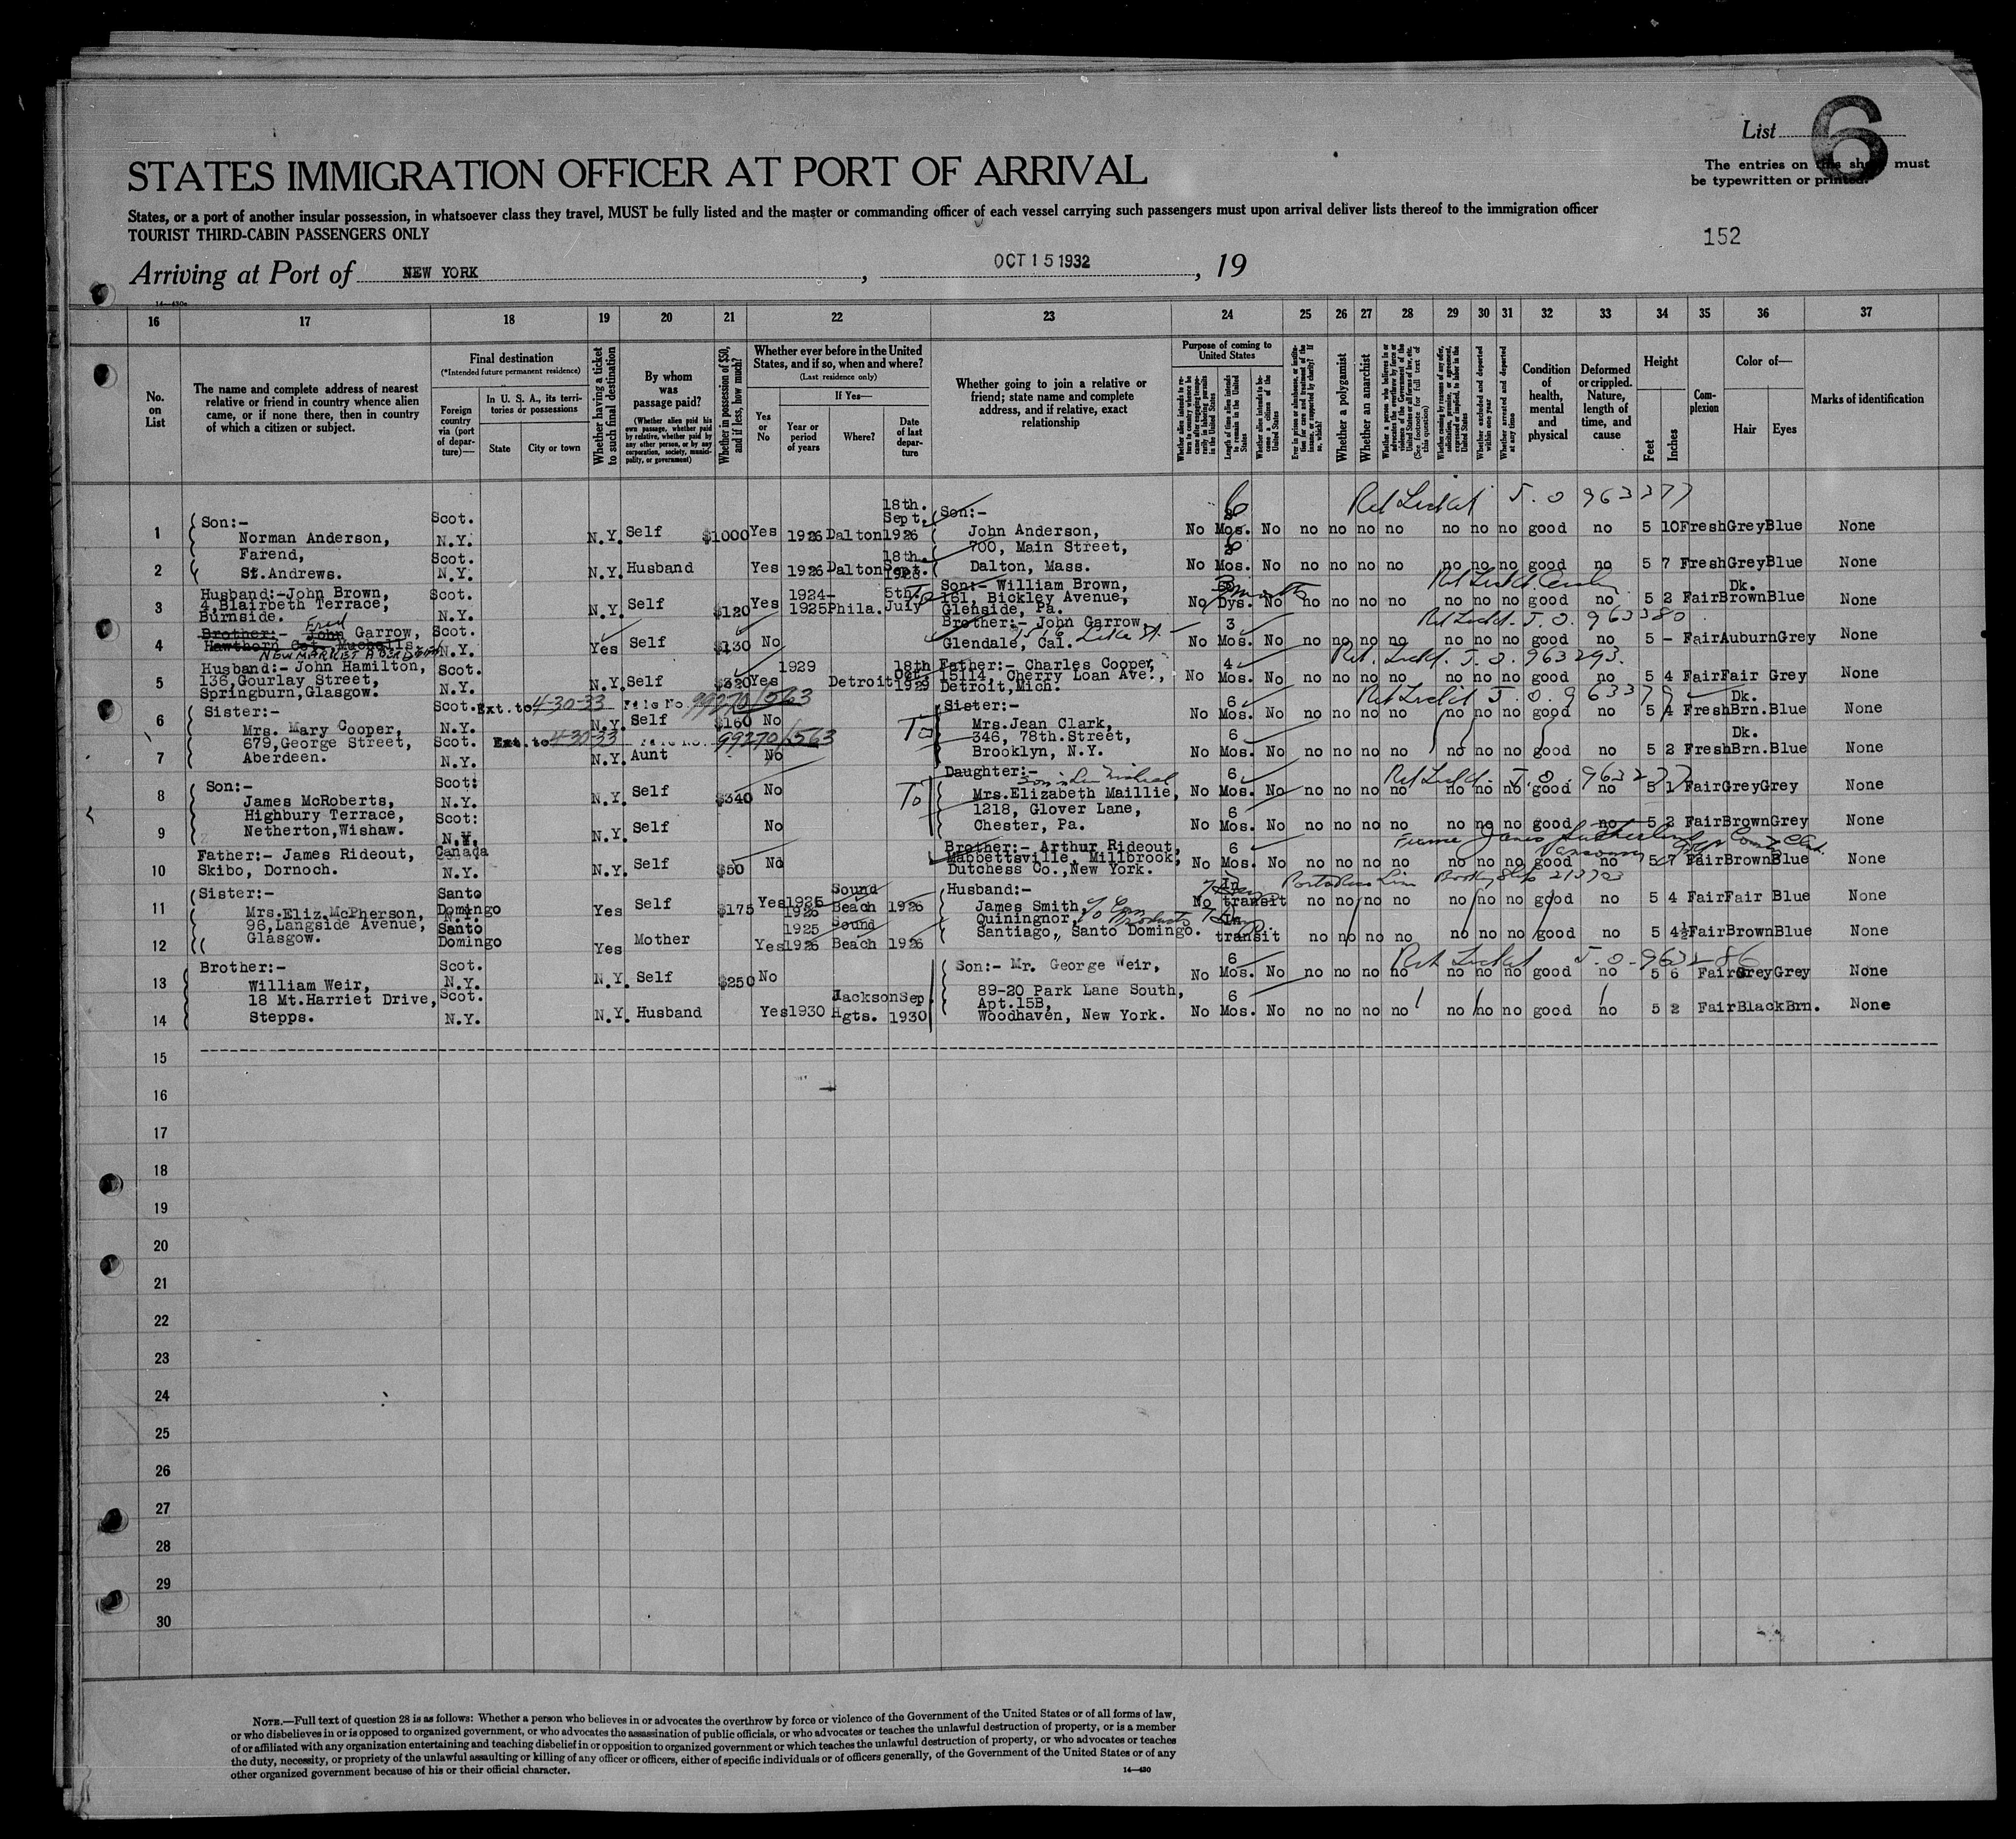 List 6
The entries on this sheet must
be typewritten or printed.
STATES IMMIGRATION OFFICER AT PORT OF ARRIVAL
States, or a port of another insular possession, in whatsoever class they travel, MUST be fully listed and the master or commanding officer of each vessel carrying such passengers must upon arrival deliver lists thereof to the immigration officer
TOURIST THIRD-CABIN PASSENGERS ONLY
152
Arriving at Port of NEW YORK, OCT 15 1932, 19
14—430
16 17 18 19 20 21 22 23 24 25 26 27 28 29 30 31 32 33 34 35 36 37
No. on List
The name and complete address of nearest relative or friend in country whence alien came, or if none there, then in country of which a citizen or subject.
Final destination
(*Intended future permanent residence)
Foreign country via (port of departure)—
In U. S. A., its territories or possessions
State City or town
Whether having a ticket to such final destination
By whom was passage paid?
(Whether alien paid his own passage, whether paid by relative, whether paid by any other person, or by any corporation, society, municipality, or government)
Whether in possession of $50, and if less, how much?
Whether ever before in the United States, and if so, when and where?
(Last residence only)
Yes or No
If Yes—
Year or period of years Where? Date of last departure
Whether going to join a relative or friend; state name and complete address, and if relative, exact relationship
Purpose of coming to United States
Length of time alien intends to remain in the United States
Whether alien intends to become a citizen of the United States
Whether a polygamist
Whether an anarchist
Whether excluded and deported within one year
Whether arrested and deported at any time
Condition of health, mental and physical
Deformed or crippled. Nature, length of time, and cause
Height
Feet Inches
Complexion
Color of—
Hair Eyes
Marks of identification
1 Son:- Norman Anderson, Scot. N.Y. N.Y. Self $1000 Yes 1926 Dalton 18th. Sept. 1926 Son:- John Anderson, No Mos. No no no no no no no no good no 5 10 Fresh Grey Blue None
2 Farend, St.Andrews. Scot. N.Y. N.Y. Husband Yes 1926 Dalton 18th. Sept. 1926 700, Main Street, Dalton, Mass. No Mos. No no no no no no no no good no 5 7 Fresh Grey Blue None
3 Husband:-John Brown, 4,Blairbeth Terrace, Burnside. Scot. N.Y. N.Y. Self $120 Yes 1924-1925 Phila. 5th. July Son:- William Brown, 161, Bickley Avenue, Glenside, Pa. No Dys. No no no no no no no no good no 5 2 Fair Dk. Brown Blue None
4 Brother:- John Fred Garrow, Hawthorn Cot. Muchalls NEWMARKET ABERDEEN Scot. N.Y. Yes Self $130 No Brother:- John Garrow, Glendale, Cal. 3 No Mos. No no no no no no no no good no 5 - Fair Auburn Grey None
Ret Ticket J.O. 963380
5 Husband:- John Hamilton, 136,Gourlay Street, Springburn,Glasgow. Scot. N.Y. N.Y. Self $320 Yes 1929 Detroit 18th Oct. 1929 Father:- Charles Cooper, 15114, Cherry Loan Ave., Detroit,Mich. 4 No Mos. No no no no no no no no good no 5 4 Fair Fair Grey None
Ret. Ticket. J.O. 963293.
6 Sister:- Mrs. Mary Cooper, Scot. N.Y. Ext. to 4-30-33 File No. 99270/563 N.Y. Self $160 No To Sister:- Mrs.Jean Clark, 6 No Mos. No no no no no no no no good no 5 4 Fresh Dk. Brn. Blue None
7 679,George Street, Aberdeen. Scot. N.Y. Ext. to 4-30-33 File No. 99270/563 N.Y. Aunt No 346, 78th.Street, Brooklyn, N.Y. 6 No Mos. No no no no no no no no good no 5 2 Fresh Dk. Brn. Blue None
8 Son:- James McRoberts, Scot: N.Y. N.Y. Self $340 No To Daughter:- Mrs.Elizabeth Maillie, 6 No Mos. No no no no no no no no good no 5 1 Fair Grey Grey None
9 Highbury Terrace, Netherton,Wishaw. Scot: N.Y. N.Y. Self No 1218, Glover Lane, Chester, Pa. 6 No Mos. No no no no no no no no good no 5 2 Fair Brown Grey None
10 Father:- James Rideout, Skibo, Dornoch. Canada N.Y. N.Y. Self $50 No Brother:- Arthur Rideout, Mabbettsville, Millbrook, Dutchess Co.,New York. 6 No Mos. No no no no no no no no good no 5 7 Fair Brown Blue None
11 Sister:- Mrs.Eliz.McPherson, Santo Domingo N.Y. Yes Self $175 Yes 1925 1926 Sound Beach 1926 Husband:- James Smith, Quiningnor, In transit No no no no no no no no good no 5 4 Fair Fair Blue None
12 96,Langside Avenue, Glasgow. Santo Domingo Yes Mother Yes 1925 1926 Sound Beach 1926 Santiago,, Santo Domingo. In transit no no no no no no no good no 5 4½ Fair Brown Blue None
13 Brother:- William Weir, Scot. N.Y. N.Y. Self $250 No Son:- Mr. George Weir, 6 No Mos. No no no no no no no no good no 5 6 Fair Grey Grey None
14 18 Mt.Harriet Drive, Stepps. Scot. N.Y. N.Y. Husband Yes 1930 Jackson Hgts. Sep 1930 89-20 Park Lane South, Apt.15B, Woodhaven, New York. 6 No Mos. No no no no no no no no good no 5 2 Fair Black Brn. None
15
16
17
18
19
20
21
22
23
24
25
26
27
28
29
30
NOTE.—Full text of question 28 is as follows: Whether a person who believes in or advocates the overthrow by force or violence of the Government of the United States or of all forms of law,
or who disbelieves in or is opposed to organized government, or who advocates the assassination of public officials, or who advocates or teaches the unlawful destruction of property, or is a member
of or affiliated with any organization entertaining and teaching disbelief in or opposition to organized government or which teaches the unlawful destruction of property, or who advocates or teaches
the duty, necessity, or propriety of the unlawful assaulting or killing of any officer or officers, either of specific individuals or of officers generally, of the Government of the United States or of any
other organized government because of his or their official character.
14—430